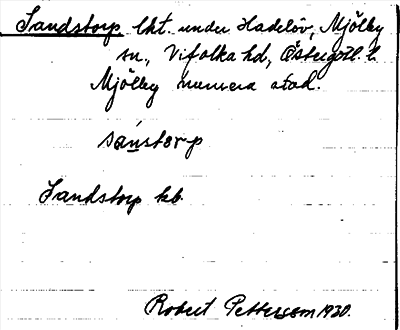 Sandstorp lht. under Hadelöv, Mjölby
sn, Vifolka hd, Östergötl. l.
Mjölby numera stad.
sánstorp
Sandstorp kb.
Robert Pettersson 1930.